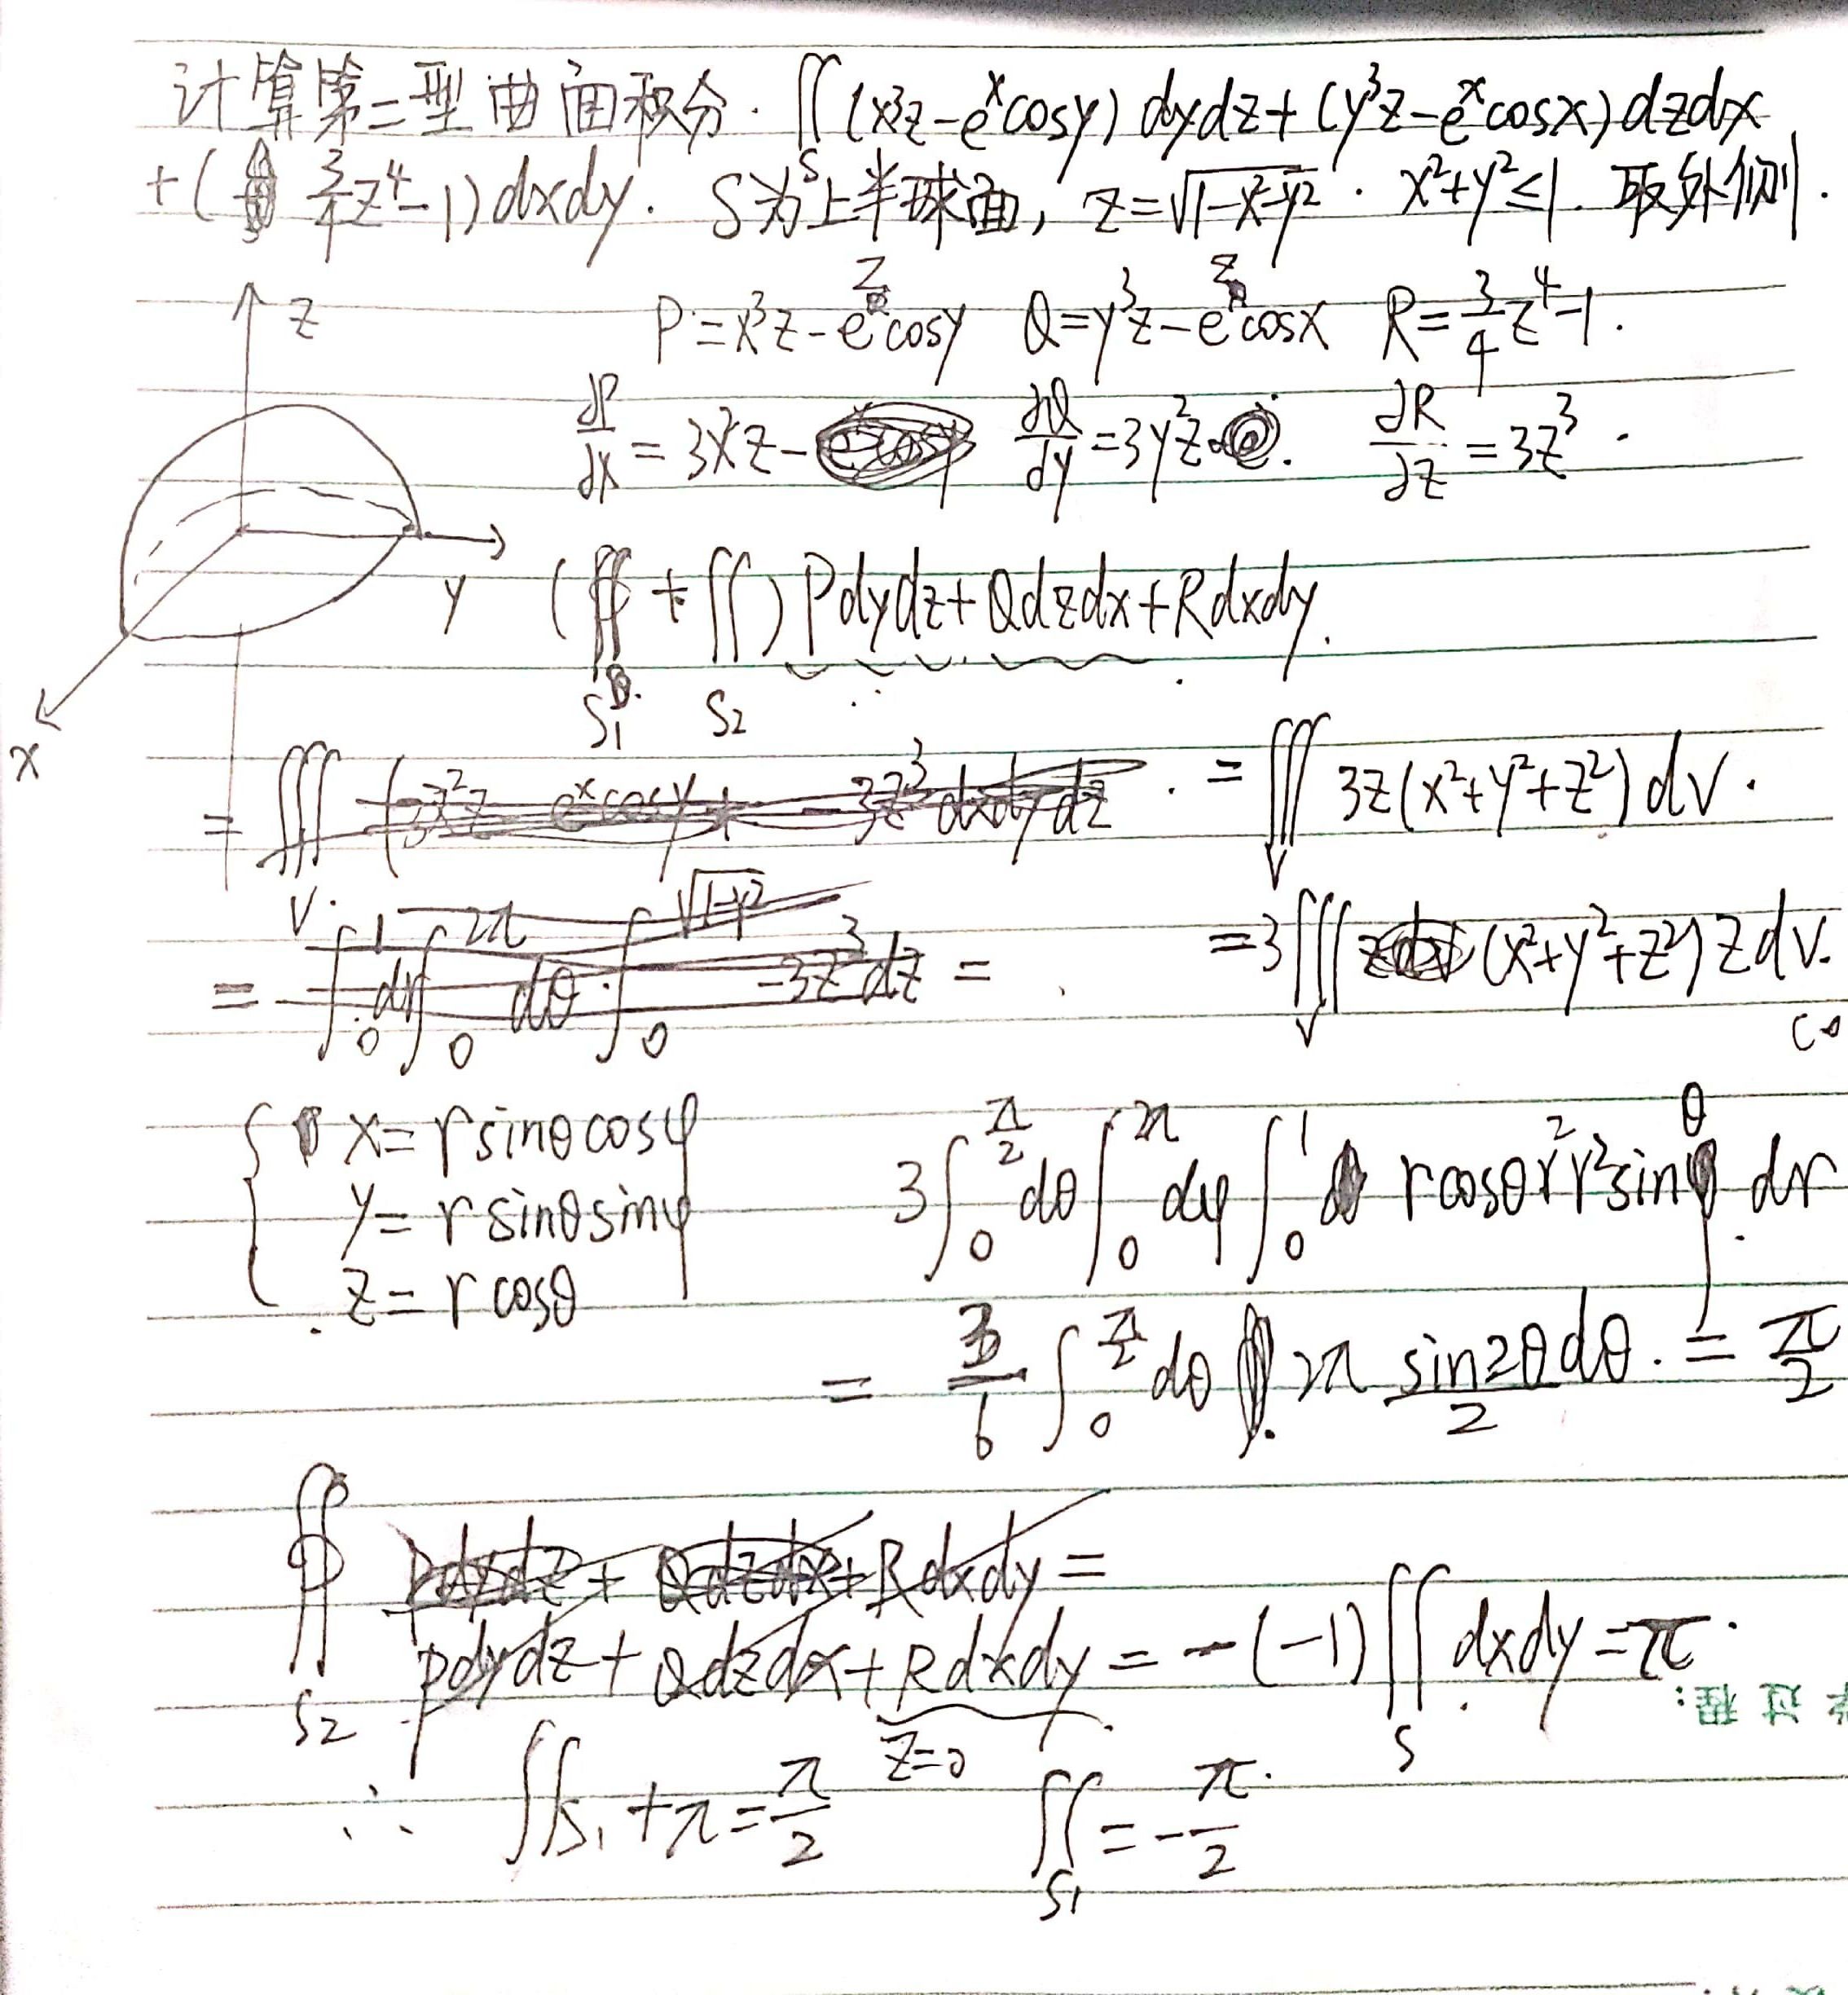 计算第二型曲面积分. ∬ (x³z-eˣcosy) dydz+(y³z-eˣcosx)dzdx
S
+( 3/4 z⁴-1)dxdy. S为上半球面, z=√(1-x²-y²) . x²+y²≤1. 取外侧.
z
P=x³z-e^z cosy Q=y³z-e^z cosx R=3/4 z⁴-1.
∂P/∂x = 3x²z- ∂Q/∂y =3y²z ∂R/∂z =3z³.
y (∬ + ∬) Pdydz+Qdzdx+Rdxdy.
S₁ S₂
x
=∭ . =∭ 3z(x²+y²+z²)dv.
V. V
= ∫₀¹dr∫₀^2π dθ∫₀^√(1-r²) -3z³dz = =3∭ (x²+y²+z²)zdv.
V
{ x=rsinθcosφ
y=rsinθsinφ
z=rcosθ
3∫₀^π/2 dθ∫₀^2π dφ∫₀¹ rcosθr²r²sinθ dr
= 3/6 ∫₀^π/2 dθ 2π sin2θ/2 dθ. = π/2
∬ Pdydz+Qdzdx+Rdxdy=
Pdydz+Qdzdx+Rdxdy=-(-1)∬ dxdy=π.
S₂ z=0 S
过程:
∴ ∬S₁+π=π/2 ∬ =-π/2
S₁